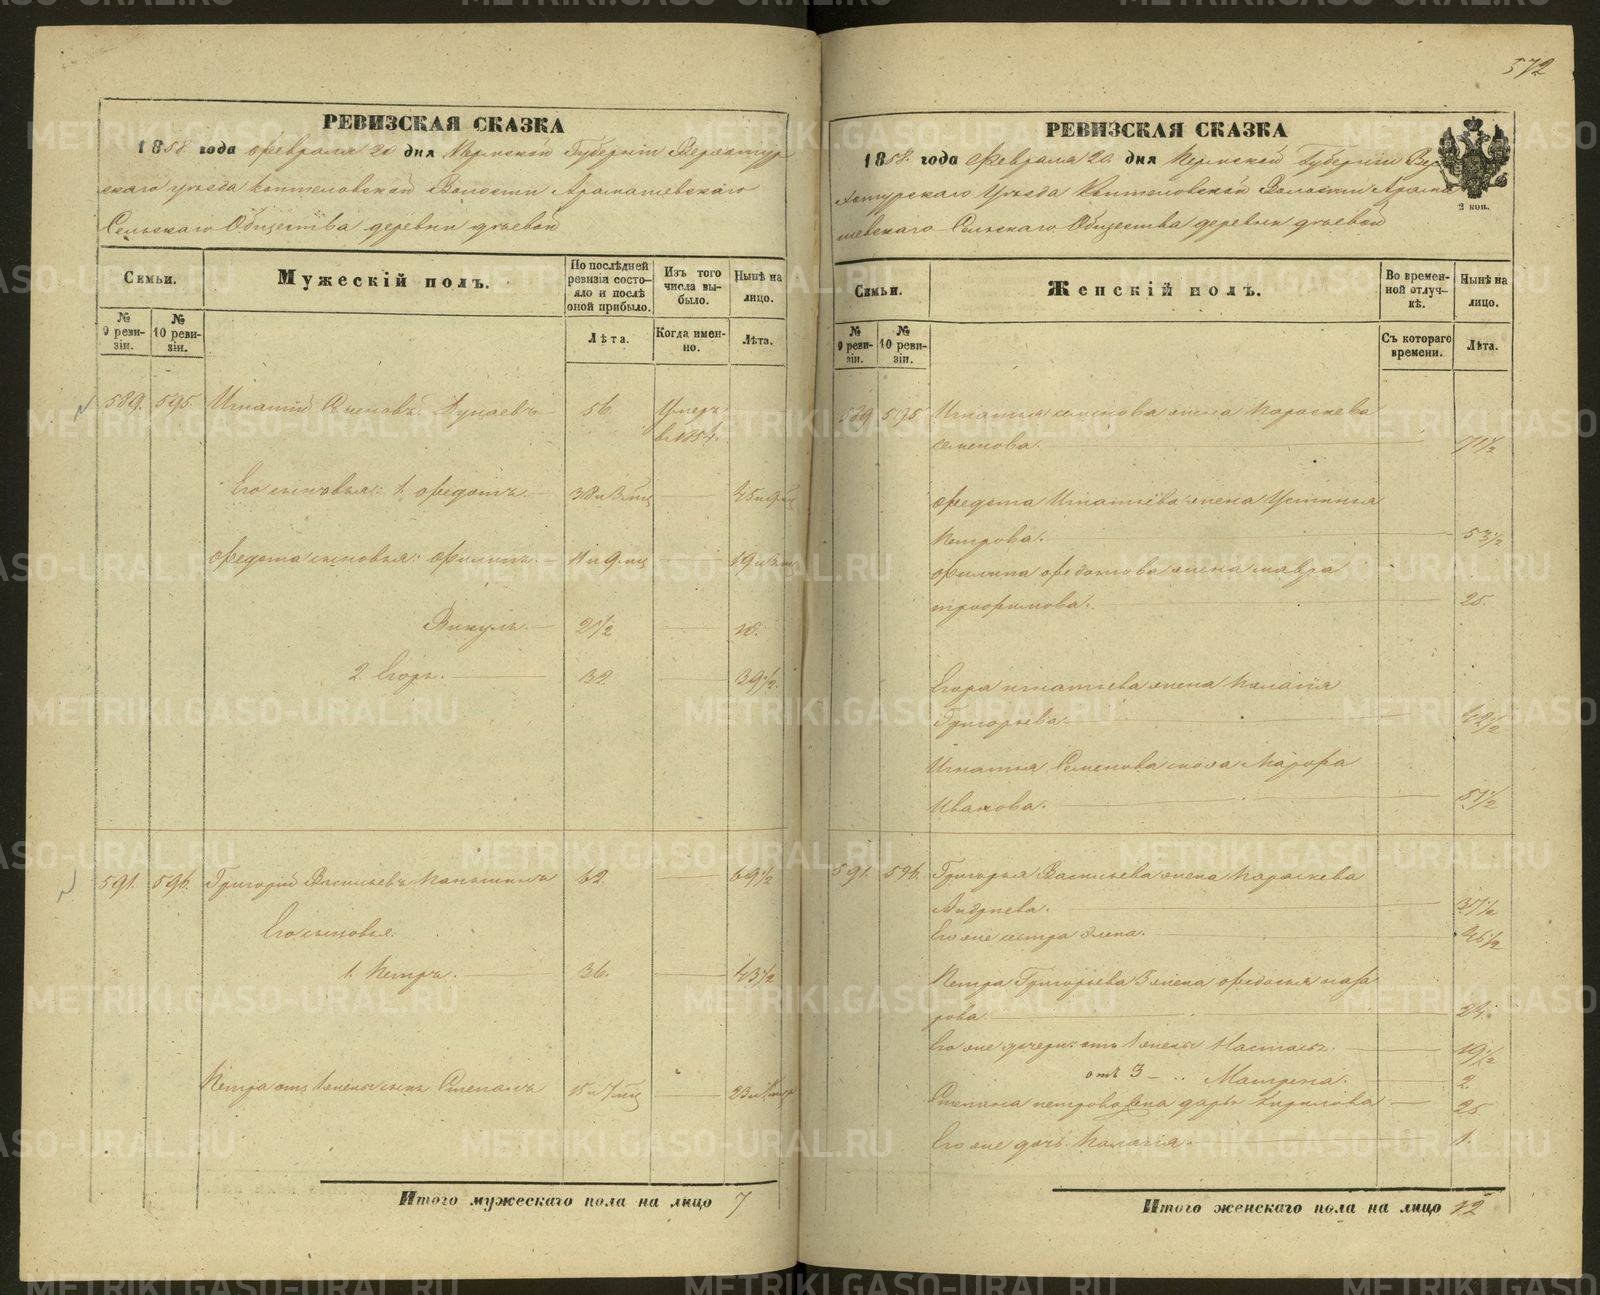 572
РЕВИЗСКАЯ СКАЗКА
1858 года февраля 20 дня Пермской Губернiи Верхотур
скаго уезда Коптеловской Волости Арамашевскаго
Сельскаго Общества деревни
Семьи.
Мужескiй полъ.
По послѣдней ревизiи состояло и послѣ оной прибыло.
Изъ того числа выбыло.
Нынѣ на лицо.
№ 9 ревизiи.
№ 10 ревизiи.
Лѣта.
Когда именно.
Лѣта.
589. 595. Игнатiй Семеновъ 56. Умеръ
в 1854.
Его сыновья: 1. Федотъ.
Федота сыновья: Филипъ. 11 и 9 мц
Викулъ. 2 1/2 10.
2. Егоръ. 32. 39 1/2.
591. 596. Григорiй Васильевъ 62. 69 1/2
Его сыновья:
1. Петръ. 36. 43 1/2
Петра отъ 1 жены сынъ Степанъ
Итого мужескаго пола на лицо 7
РЕВИЗСКАЯ СКАЗКА
1858. года Февраля 20. дня Пермской Губернiи Вер
хотурскаго Уезда Коптеловской Волости Арама
шевскаго Сельскаго Общества деревни
2 коп.
Семьи.
Женскiй полъ.
Во временной отлучкѣ.
Нынѣ на лицо.
№ 9 ревизiи.
№ 10 ревизiи.
Съ котораго времени.
Лѣта.
589 595 Игнатья семенова жена Параскева
семенова.
Федота Игнатьева жена Устинья
Петрова. 53 1/2
Филипа федотова жена мавра
трофимова. 25.
Егора игнатьева жена Палагiя
Григорьева 42 1/2
Игнатья Семенова Марфа
Иванова. 57 1/2
591. 596. Григорья Васильева жена Параскева
Андреева. 57 1/2
Его же сестра Елена. 46 1/2
Петра Григорьева 3 жена федосья наза
рова. 24.
Его же дочери: отъ 1 жены Настасья. 19 1/2
отъ 3 — .. Матрена. 2.
Степана петрова жена дарья кирилова 25
Его же дочь Палагiя. 1.
Итого женскаго пола на лицо 12
METRIKI.GASO-URAL.RU